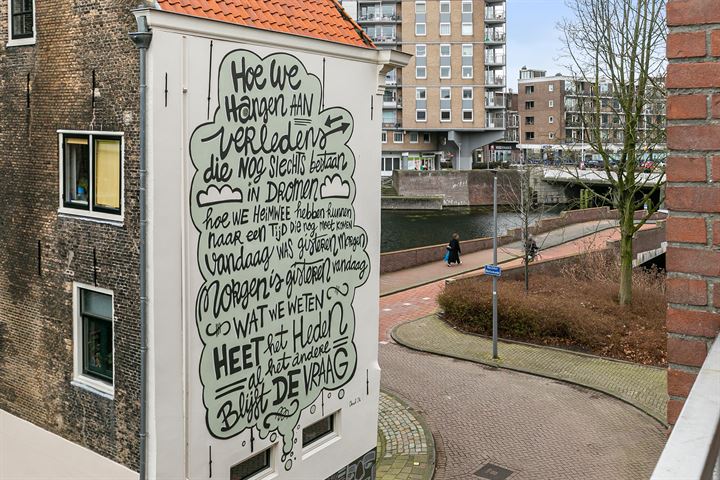 Hoe We
Hangen AAN
Verledens
die NOG Slechts Bestaan
in DROMEN
hoe WE HEIMWEE hebben kunnen
naar een TIJD DIE nog moet KOMEN
Vandaag WAS gisteren Morgen
Morgen is gisteren vandaag
WAT WE WETEN
HEET het Heden
al het andere
Blijft DE VRAAG